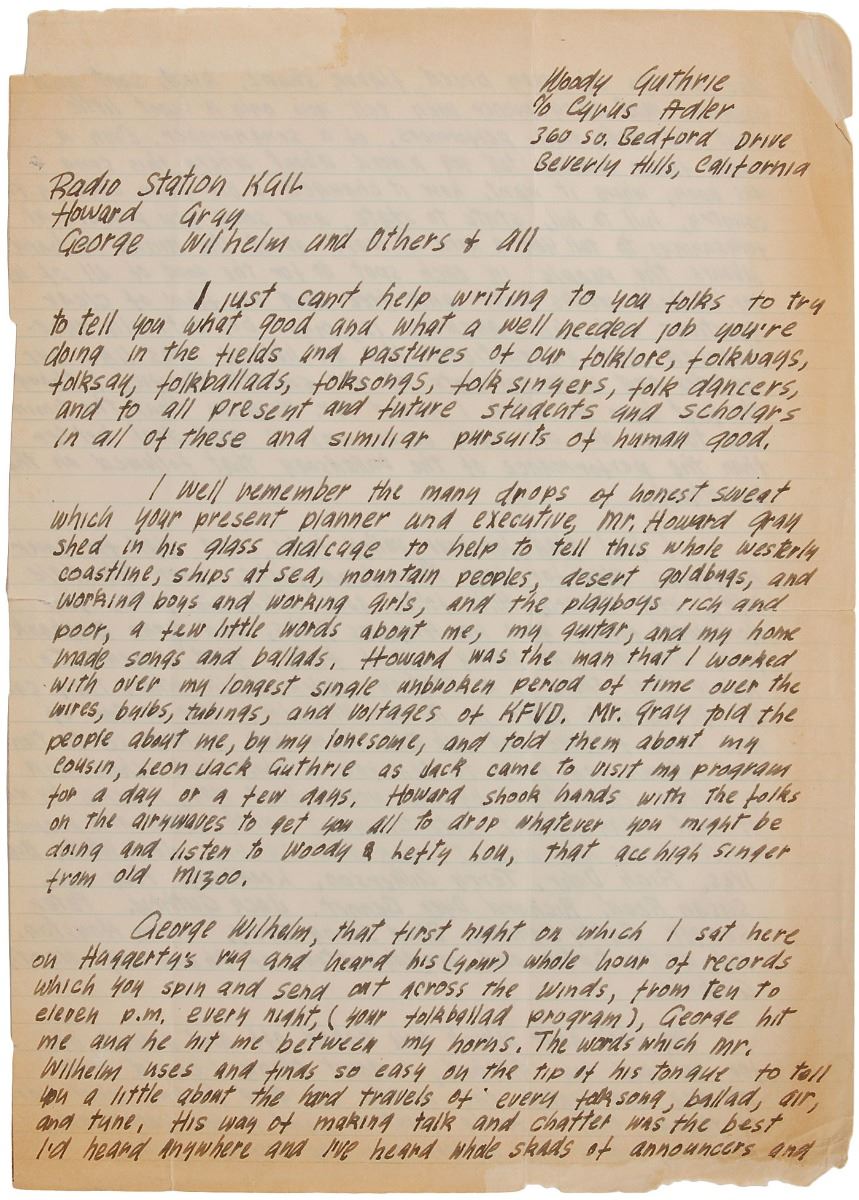 Woody Guthrie
c/o Cyrus Adler
360 so. Bedford Drive
Beverly Hills, California
Radio Station KGIL
Howard Gray
George Wilhelm and Others & All
I just can't help writing to you folks to try
to tell you what good and what a well needed job you're
doing in the fields and pastures of our folklore, folkways,
folksay, folkballads, folksongs, folk singers, folk dancers,
and to all present and future students and scholars
in all of these and similiar pursuits of human good.
I well remember the many drops of honest sweat
which your present planner and executive, Mr. Howard Gray
shed in his glass dialcage to help to tell this whole westerly
coastline, ships at sea, mountain peoples, desert goldbugs, and
working boys and working girls, and the playboys rich and
poor, a few little words about me, my guitar, and my home
made songs and ballads. Howard was the man that I worked
with over my longest single unbroken period of time over the
wires, bulbs, tubings, and voltages of KFVD. Mr. Gray told the
people about me, by my lonesome, and told them about my
cousin, Leon Jack Guthrie as Jack came to visit my program
for a day or a few days. Howard shook hands with the folks
on the airywaves to get you all to drop whatever you might be
doing and listen to Woody & Lefty Lou, that ace high singer
from old Mizoo.
George Wilhelm, that first night on which I sat here
on Haggerty's rug and heard his (your) whole hour of records
which you spin and send out across the winds, from ten to
eleven p.m. every night, (your folkballad program), George hit
me and he hit me between my horns. The words which Mr.
Wilhelm uses and finds so easy on the tip of his tongue to tell
you a little about the hard travels of every folksong, ballad, air,
and tune. His way of making talk and chatter was the best
I'd heard anywhere and I've heard whole skads of announcers and